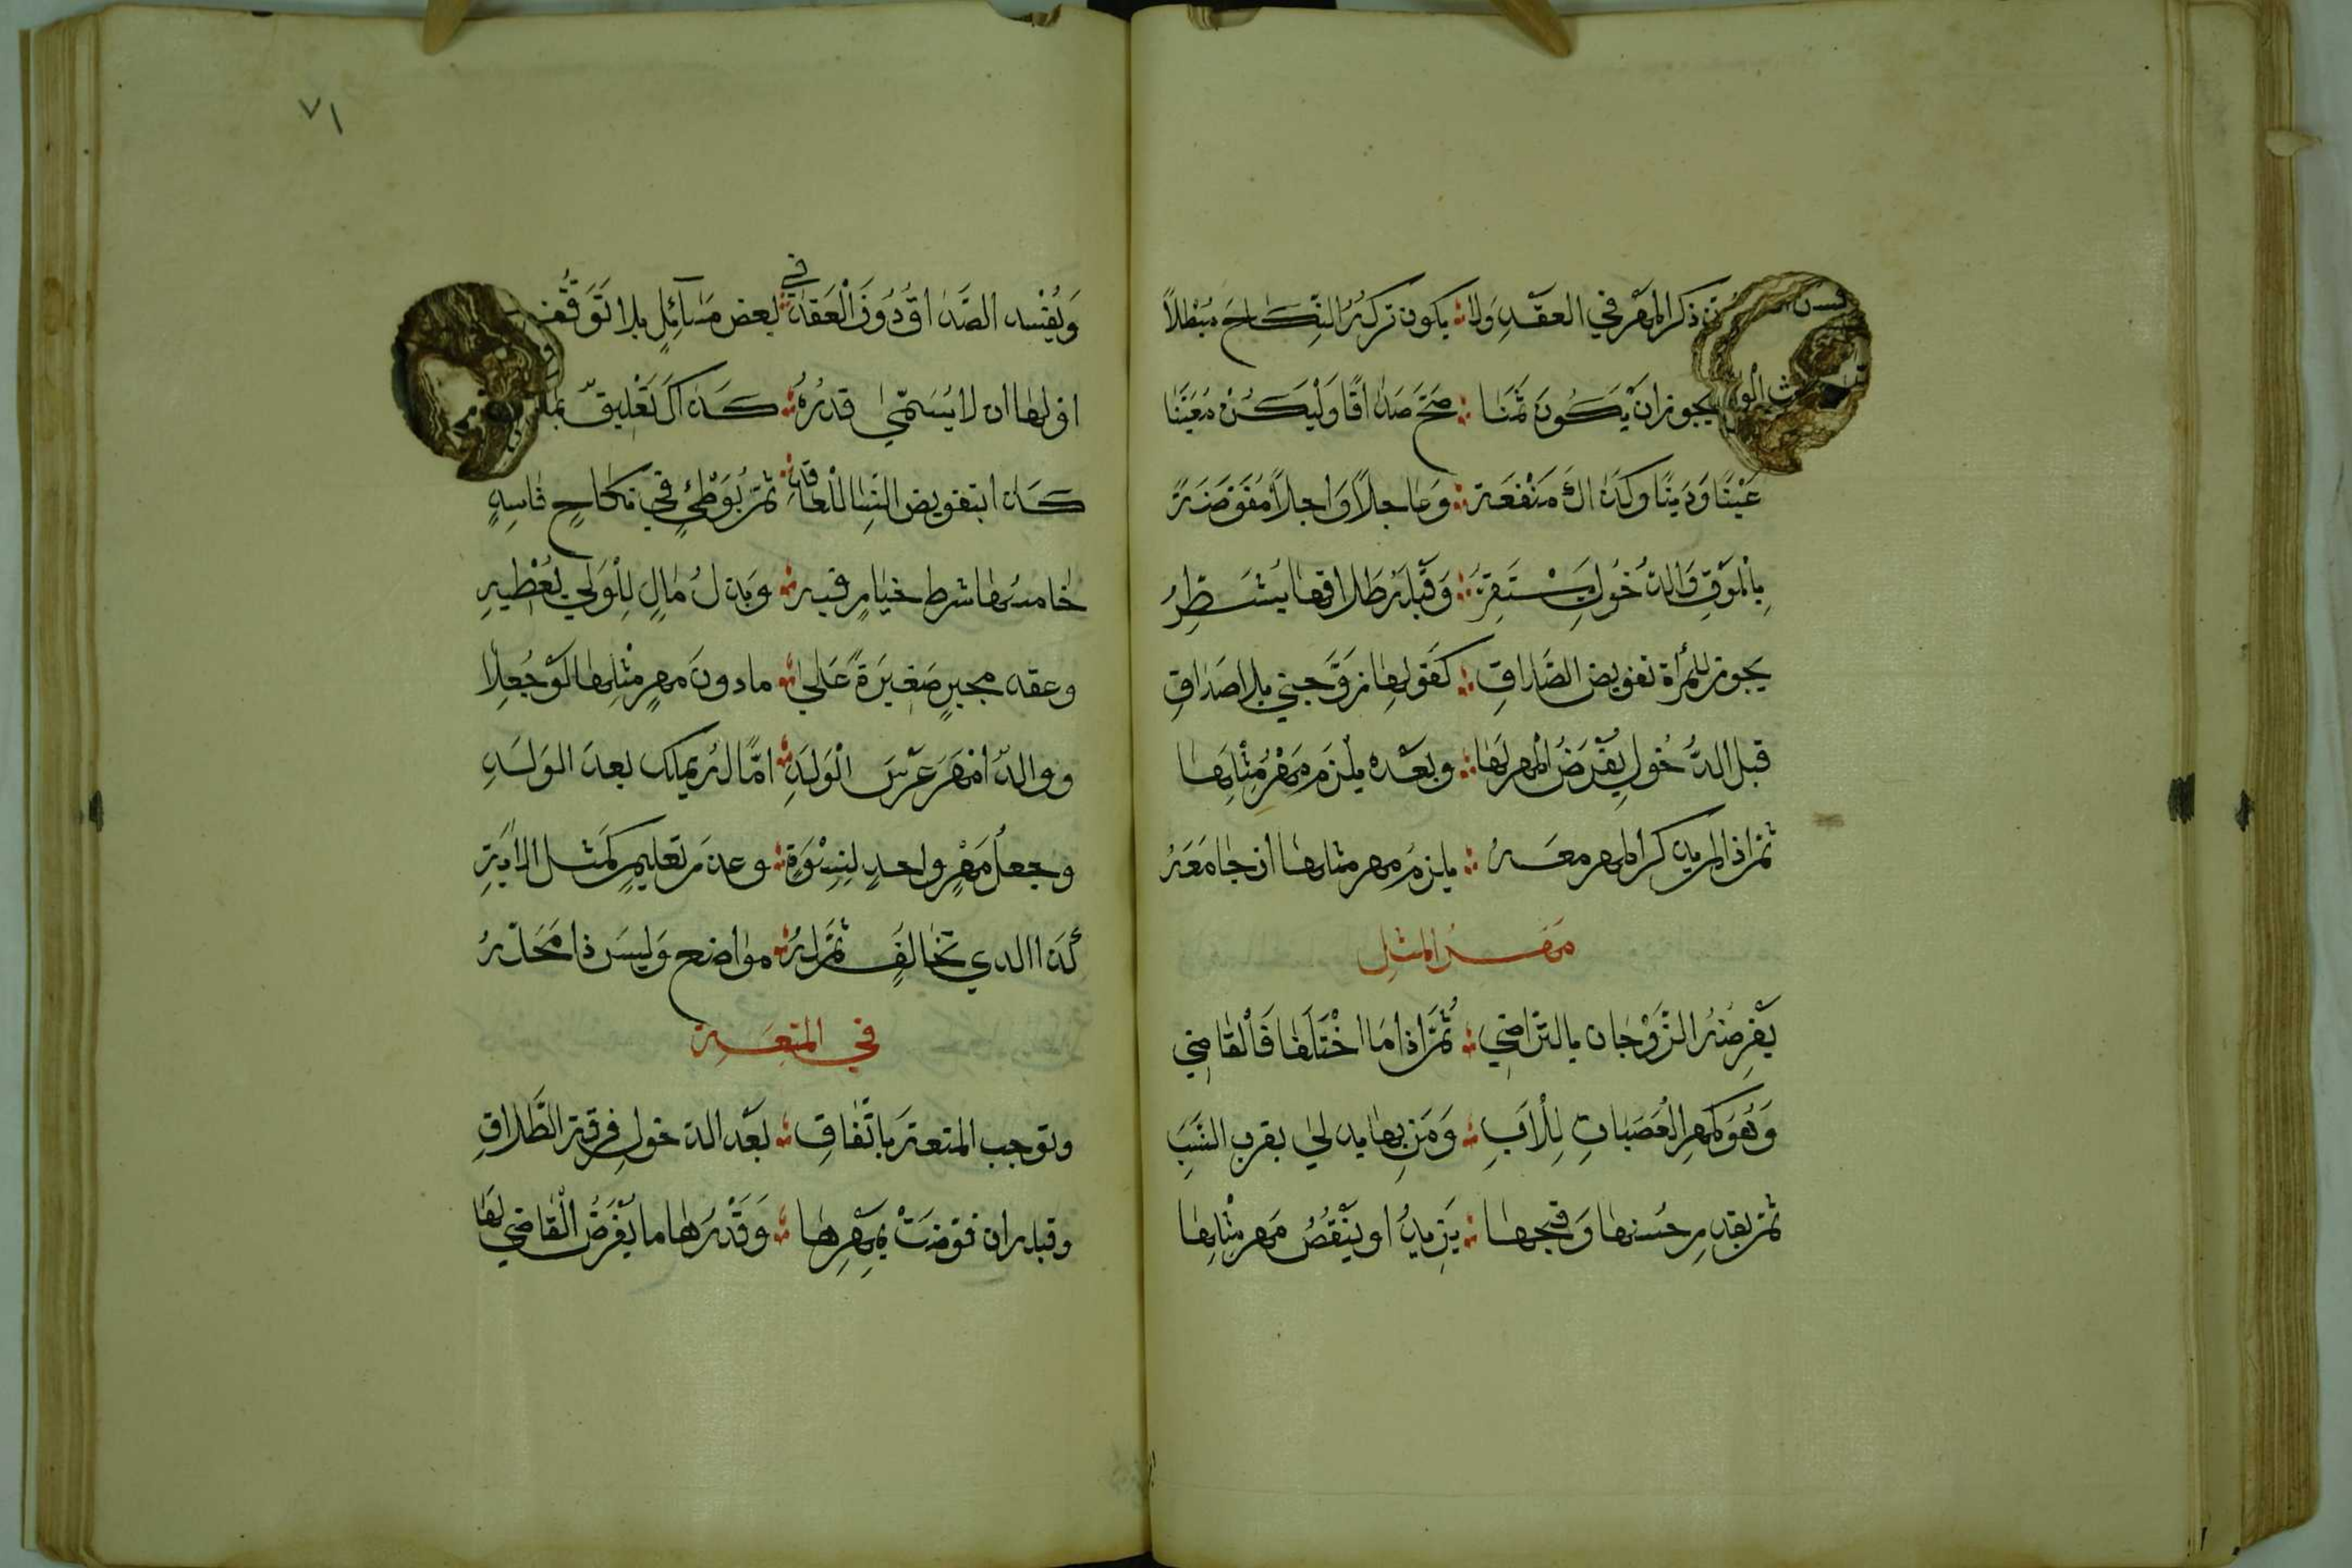 يسن ذكر المهر في العقد ولا ∴ يكون تركه النكاح مبطلا
يجوز ان يكون ثمنا ∴ صح صداقا وليكن معينا
عينا ودينا وكذاك منفعة ∴ وعاجلا واجلا مفوضة
بالموت والدخول يستقر ∴ وقبله طلاقها يشطر
يجوز للمرأة تفويض الصداق ∴ كقولها زوجني بلا صداق
قبل الدخول يفرض المهر لها ∴ وبعده يلزم مهر مثلها
ثم اذا لم يذكر المهر معه ∴ يلزم مهر مثلها ان جامعه
مهر المثل
يفرضه الزوجان بالتراضي ∴ ثم اذا ما اختلفا فالقاضي
وهو كمهر العصبات للأب ∴ ومن بها يدلى بقرب النسب
ثم بقدر حسنها وقبحها ∴ يزيد او ينقص مهر مثلها
٧١
ويفسد الصداق دون العقد في ∴ بعض مسآئل بلا توقف
اولها ان لا يسمى قدره ∴ كذاك تعليق
كذا بتفويض النسا للعاقد ∴ ثم بوطئ في نكاح فاسد
خامسها شرط خيار فيه ∴ وبذل مال للولي يعطيه
وعقد مجبر صغيرة على ∴ ما دون مهر مثلها لو جعلا
ووالد امهر عرس الولد ∴ اما لم يملك بعد الولد
وجعل مهر واحد لنسوة ∴ وعدم تعليم كمثل الاية
كذا الذي تخالف ثم له ∴ مواضح وليس ذا محله
في المتعة
وتوجب المتعة باتفاق ∴ بعد الدخول فرقة الطلاق
وقبله ان فوضت بمهرها ∴ وقدرها ما يفرض القاضي لها